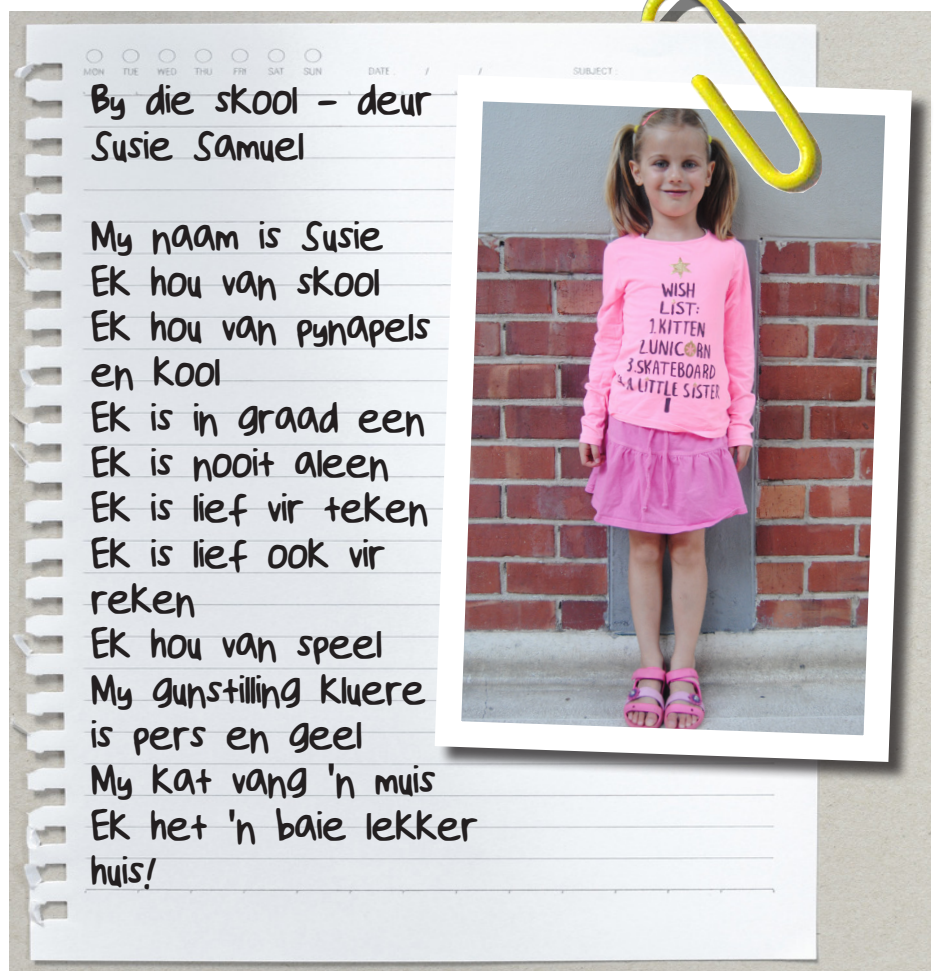 MON TUE WED THU FRI SAT SUN DATE : / / SUBJECT :
By die skool - deur
Susie Samuel
My naam is Susie
Ek hou van skool
Ek hou van pynapels
en kool
Ek is in graad een
Ek is nooit aleen
Ek is lief vir teken
Ek is lief ook vir
reken
Ek hou van speel
My gunstilling kluere
is pers en geel
My kat vang 'n muis
Ek het 'n baie lekker
huis!
WISH
LIST:
1.KITTEN
2.UNICORN
3.SKATEBOARD
A LITTLE SISTER